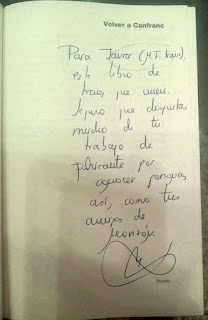 Volver a Canfranc
Para Javier (M.F. train),
este libro de
trenes que unen.
Espero que disfrutes
mucho de tu
trabajo de
fabricante por
conocer parques
así, como tus
amigos de
Monzón.